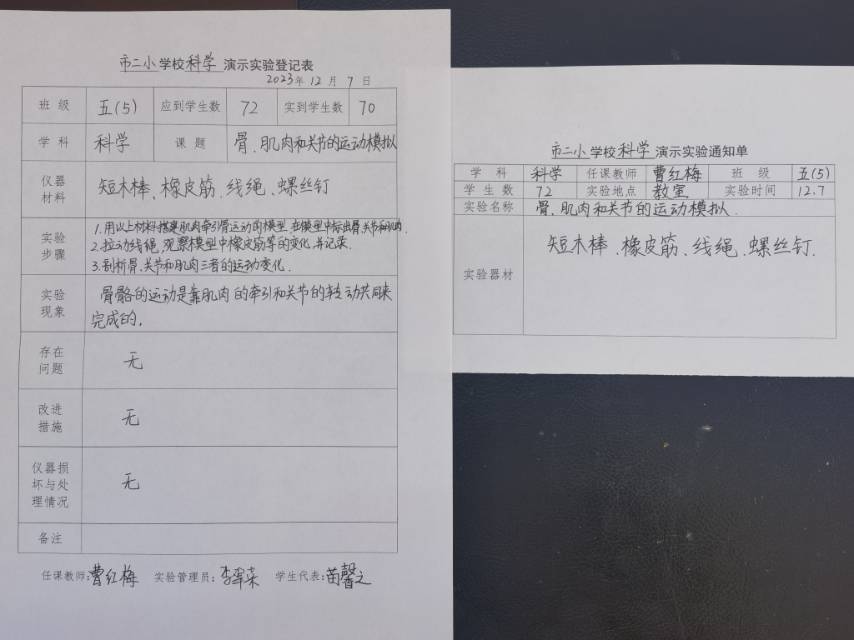 市二小学校科学演示实验登记表
2023年12月7日
班级 五(5) 应到学生数 72 实到学生数 70
学科 科学 课题 骨、肌肉和关节的运动模拟
仪器材料 短木棒、橡皮筋、线绳、螺丝钉
实验步骤 1.用以上材料搭建肌肉牵引骨运动的模型,在模型中标出骨关节和肌肉.
2.拉动线绳,观察模型中橡皮筋等的变化,并记录.
3.剖析骨、关节和肌肉三者的运动变化.
实验现象 骨骼的运动是靠肌肉的牵引和关节的转动共同来
完成的.
存在问题 无
改进措施 无
仪器损坏与处理情况 无
备注
任课教师:曹红梅 实验管理员: 学生代表:苗馨之
市二小学校科学演示实验通知单
学科 科学 任课教师 曹红梅 班级 五(5)
学生数 72 实验地点 教室 实验时间 12.7
实验名称 骨、肌肉和关节的运动模拟.
实验器材 短木棒、橡皮筋、线绳、螺丝钉.